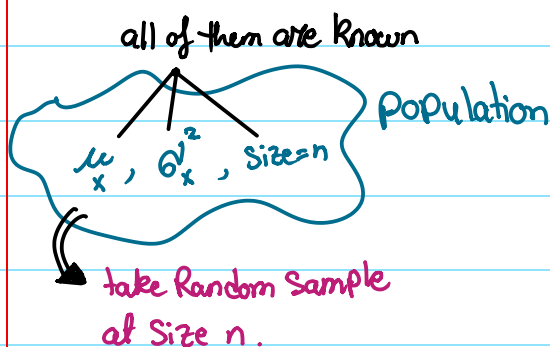 all of them are known
Population
μx , σx² , Size=n
take Random Sample
at Size n.